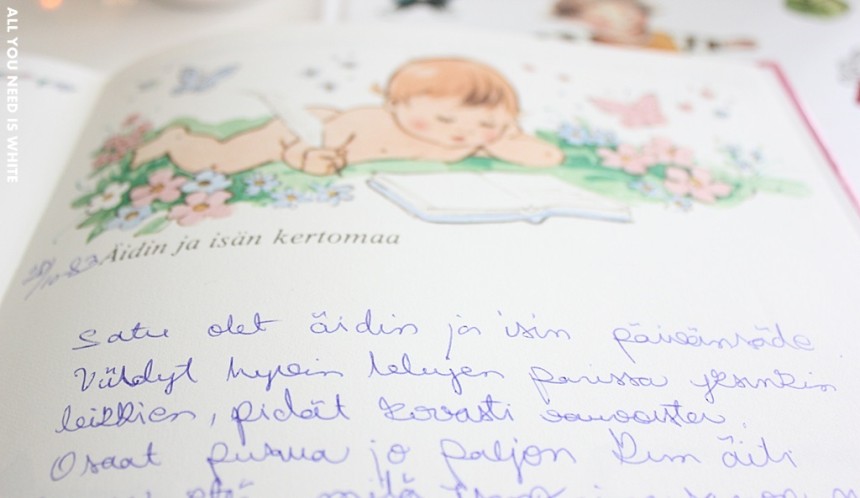 ALL YOU NEED IS WHITE
Äidin ja isän kertomaa
Satu olet äidin ja isin päivänsäde
Viihdyt hyvin lelujen parissa yksinkin
leikkien, pidät kovasti
Osaat puhua jo paljon kun äiti
mitä